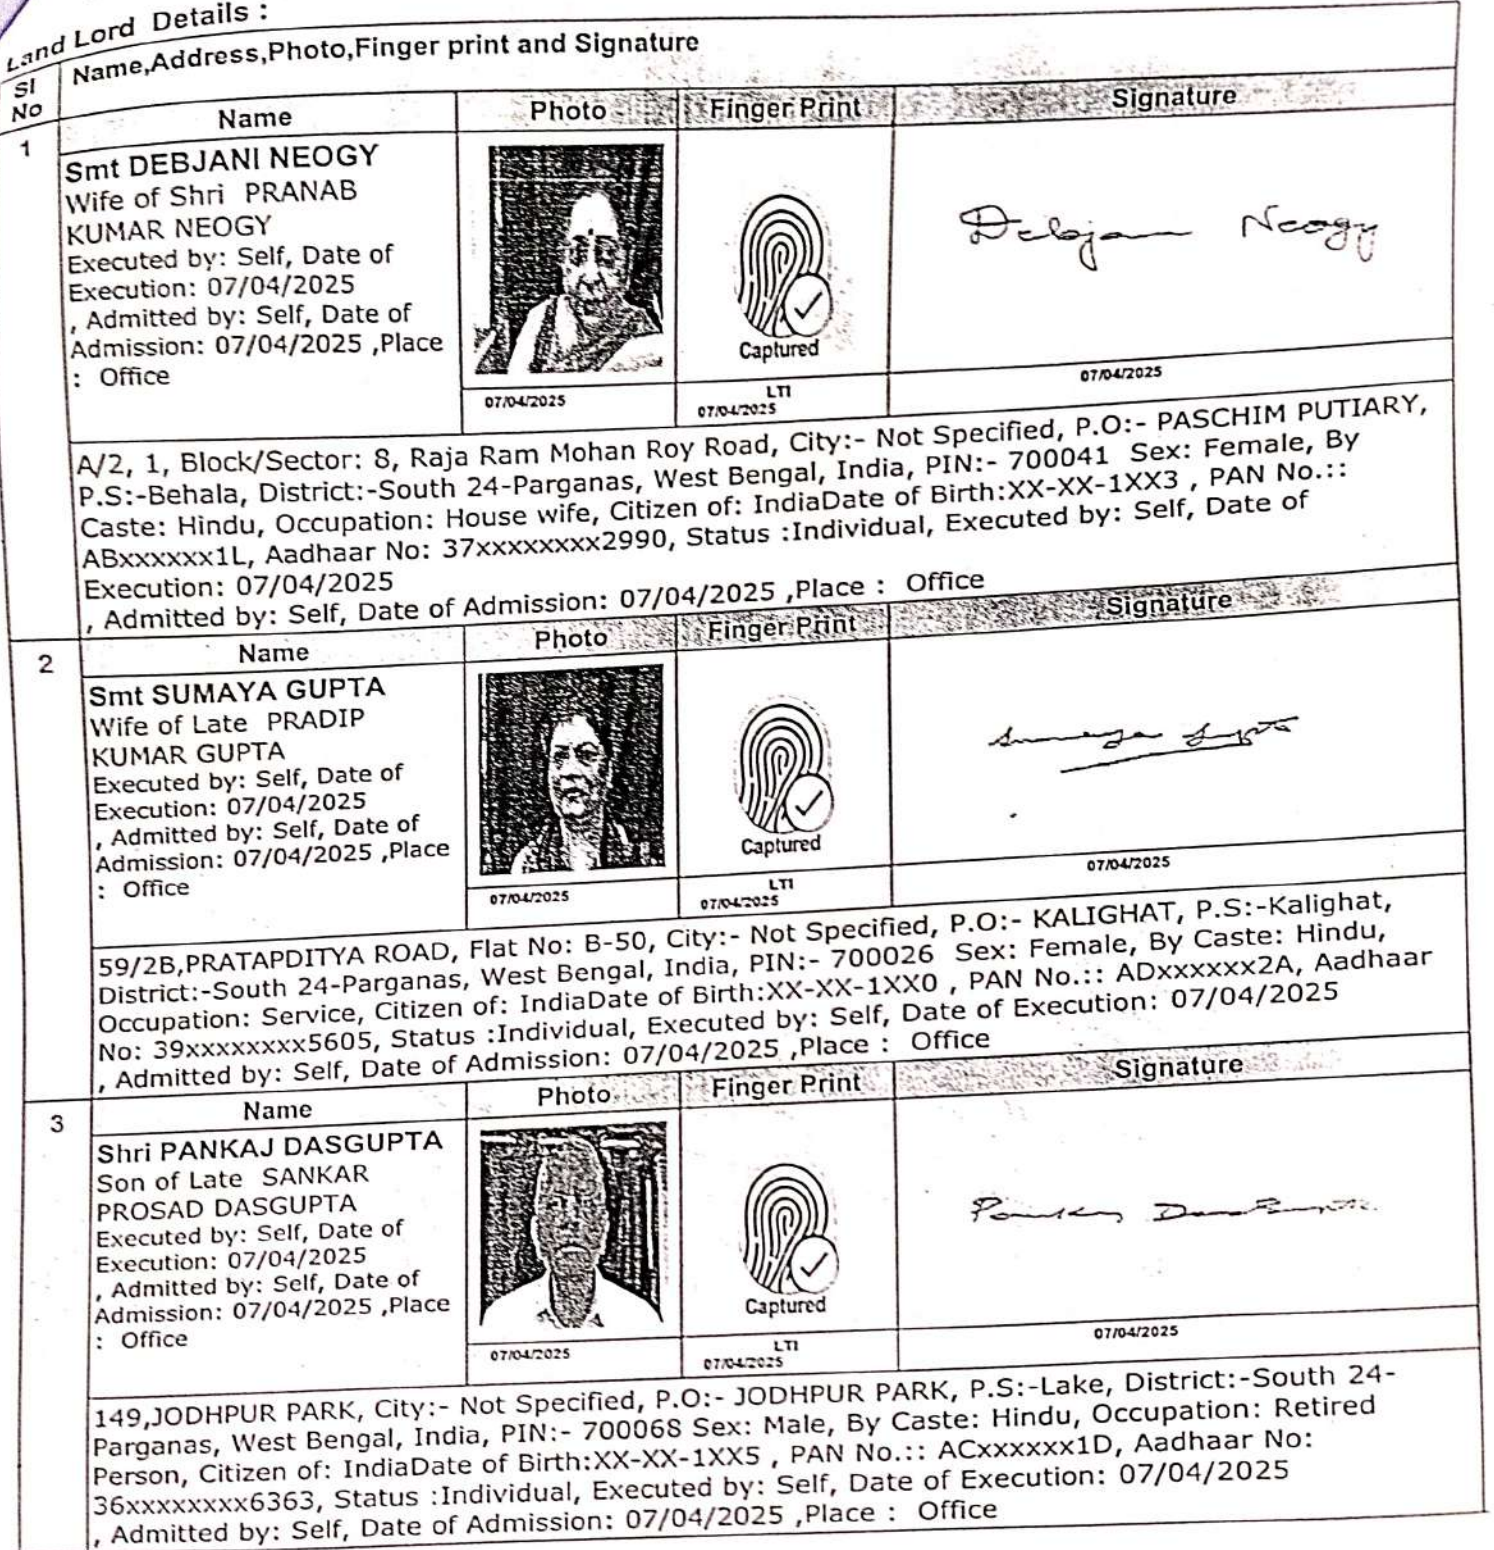 Land Lord Details :
Sl No
Name,Address,Photo,Finger print and Signature
1
Name
Photo
Finger Print
Signature
Smt DEBJANI NEOGY
Wife of Shri PRANAB
KUMAR NEOGY
Executed by: Self, Date of
Execution: 07/04/2025
, Admitted by: Self, Date of
Admission: 07/04/2025 ,Place
: Office
Captured
Debjani Neogy
07/04/2025
LTI
07/04/2025
07/04/2025
A/2, 1, Block/Sector: 8, Raja Ram Mohan Roy Road, City:- Not Specified, P.O:- PASCHIM PUTIARY,
P.S:-Behala, District:-South 24-Parganas, West Bengal, India, PIN:- 700041 Sex: Female, By
Caste: Hindu, Occupation: House wife, Citizen of: IndiaDate of Birth:XX-XX-1XX3 , PAN No.::
ABxxxxxx1L, Aadhaar No: 37xxxxxxxx2990, Status :Individual, Executed by: Self, Date of
Execution: 07/04/2025
, Admitted by: Self, Date of Admission: 07/04/2025 ,Place : Office
2
Name
Photo
Finger Print
Signature
Smt SUMAYA GUPTA
Wife of Late PRADIP
KUMAR GUPTA
Executed by: Self, Date of
Execution: 07/04/2025
, Admitted by: Self, Date of
Admission: 07/04/2025 ,Place
: Office
Captured
Sumaya Gupta
07/04/2025
LTI
07/04/2025
07/04/2025
59/2B,PRATAPDITYA ROAD, Flat No: B-50, City:- Not Specified, P.O:- KALIGHAT, P.S:-Kalighat,
District:-South 24-Parganas, West Bengal, India, PIN:- 700026 Sex: Female, By Caste: Hindu,
Occupation: Service, Citizen of: IndiaDate of Birth:XX-XX-1XX0 , PAN No.:: ADxxxxxx2A, Aadhaar
No: 39xxxxxxxx5605, Status :Individual, Executed by: Self, Date of Execution: 07/04/2025
, Admitted by: Self, Date of Admission: 07/04/2025 ,Place : Office
3
Name
Photo
Finger Print
Signature
Shri PANKAJ DASGUPTA
Son of Late SANKAR
PROSAD DASGUPTA
Executed by: Self, Date of
Execution: 07/04/2025
, Admitted by: Self, Date of
Admission: 07/04/2025 ,Place
: Office
Captured
Pankaj DasGupta
07/04/2025
LTI
07/04/2025
07/04/2025
149,JODHPUR PARK, City:- Not Specified, P.O:- JODHPUR PARK, P.S:-Lake, District:-South 24-
Parganas, West Bengal, India, PIN:- 700068 Sex: Male, By Caste: Hindu, Occupation: Retired
Person, Citizen of: IndiaDate of Birth:XX-XX-1XX5 , PAN No.:: ACxxxxxx1D, Aadhaar No:
36xxxxxxxx6363, Status :Individual, Executed by: Self, Date of Execution: 07/04/2025
, Admitted by: Self, Date of Admission: 07/04/2025 ,Place : Office